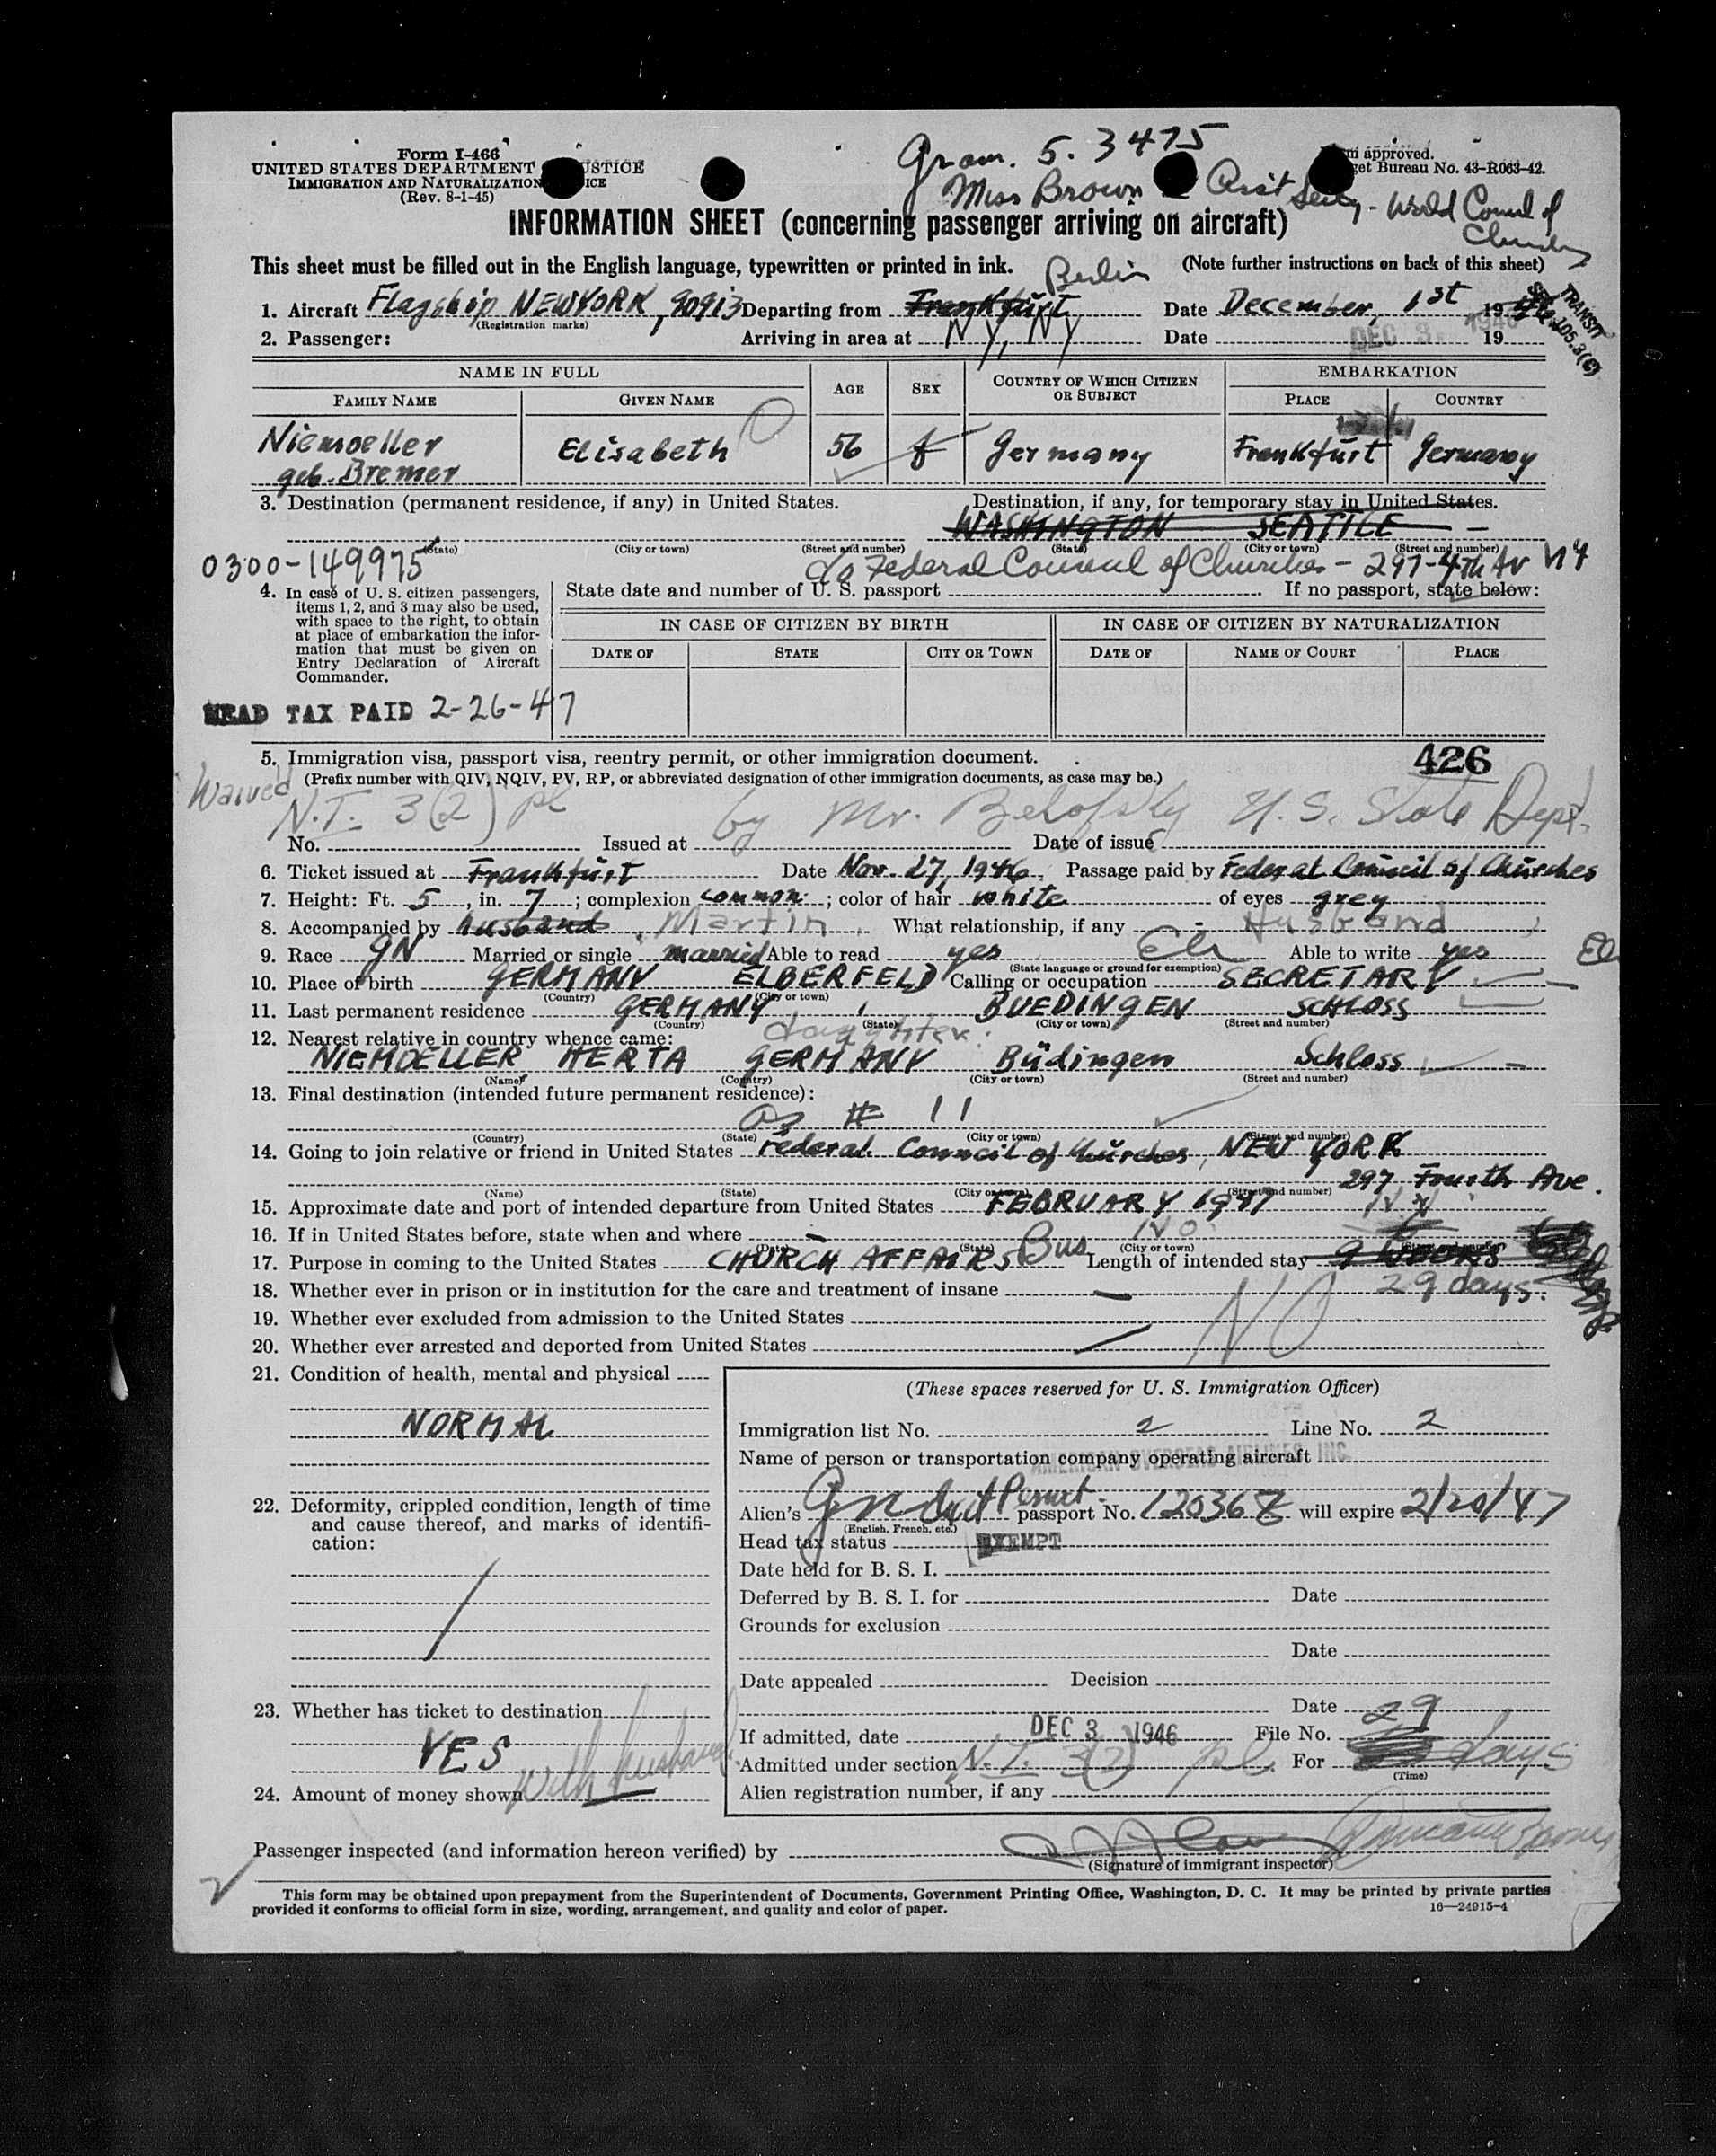 Gram. 5. 3475
Form I-466
UNITED STATES DEPARTMENT JUSTICE
approved.
IMMIGRATION AND NATURALIZATION
get Bureau No. 43-R063-42.
(Rev. 8-1-45)
Miss Brown - Asst Secy - World Council of
Churches
INFORMATION SHEET (concerning passenger arriving on aircraft)
This sheet must be filled out in the English language, typewritten or printed in ink.
(Note further instructions on back of this sheet)
Berlin
1. Aircraft Flagship NEWYORK, 90913 Departing from Frankfurt Date December, 1st 19
(Registration marks)
TRANSIT
105.3(c)
2. Passenger: Arriving in area at NY, NY Date DEC 3 1946 19
NAME IN FULL
AGE
SEX
COUNTRY OF WHICH CITIZEN OR SUBJECT
EMBARKATION
FAMILY NAME
GIVEN NAME
PLACE
COUNTRY
Niemoeller
geb. Bremer
Elisabeth
56
f
Germany
Frankfurt
Germany
3. Destination (permanent residence, if any) in United States.
Destination, if any, for temporary stay in United States.
WASHINGTON SEATTLE -
(State) (City or town) (Street and number) (State) (City or town) (Street and number)
0300-149975
c/o Federal Council of Churches - 297-4th Av NY
4. In case of U. S. citizen passengers,
items 1, 2, and 3 may also be used,
with space to the right, to obtain
at place of embarkation the infor-
mation that must be given on
Entry Declaration of Aircraft
Commander.
State date and number of U. S. passport If no passport, state below:
IN CASE OF CITIZEN BY BIRTH
IN CASE OF CITIZEN BY NATURALIZATION
DATE OF
STATE
CITY OR TOWN
DATE OF
NAME OF COURT
PLACE
HEAD TAX PAID 2-26-47
5. Immigration visa, passport visa, reentry permit, or other immigration document.
426
(Prefix number with QIV, NQIV, PV, RP, or abbreviated designation of other immigration documents, as case may be.)
Waived
N.T. 3(2) pl by Mr. Belofsky U.S. State Dept.
No. Issued at Date of issue
6. Ticket issued at Frankfurt Date Nov. 27, 1946, Passage paid by Federal Council of Churches
7. Height: Ft. 5, in. 7; complexion common; color of hair white of eyes grey
8. Accompanied by husband Martin What relationship, if any - Husband
9. Race GN Married or single married Able to read yes Eh Able to write yes
(State language or ground for exemption)
10. Place of birth GERMANY ELBERFELD Calling or occupation SECRETARY
(Country) (City or town)
11. Last permanent residence GERMANY BUEDINGEN SCHLOSS
(Country) (State) (City or town) (Street and number)
12. Nearest relative in country whence came: daughter
NIEMOELLER HERTA GERMANY Büdingen Schloss
(Name) (Country) (City or town) (Street and number)
13. Final destination (intended future permanent residence):
as # 11
(Country) (State) (City or town) (Street and number)
14. Going to join relative or friend in United States Federal Council of Churches, NEW YORK
297 Fourth Ave.
(Name) (State) (City or town) (Street and number)
15. Approximate date and port of intended departure from United States FEBRUARY 1947 N.Y.
16. If in United States before, state when and where - No
(Date) (State) (City or town)
17. Purpose in coming to the United States CHURCH AFFAIRS Bus Length of intended stay 9 Weeks
29 days.
18. Whether ever in prison or in institution for the care and treatment of insane
19. Whether ever excluded from admission to the United States
NO
20. Whether ever arrested and deported from United States
21. Condition of health, mental and physical
NORMAL
22. Deformity, crippled condition, length of time
and cause thereof, and marks of identifi-
cation:
23. Whether has ticket to destination
YES
24. Amount of money shown with husband
(These spaces reserved for U. S. Immigration Officer)
Immigration list No. 2 Line No. 2
Name of person or transportation company operating aircraft
AMERICAN OVERSEAS AIRLINES, INC.
Alien's Gn Exit Permit passport No. 120367 will expire 2/20/47
(English, French, etc.)
Head tax status EXEMPT
Date held for B. S. I.
Deferred by B. S. I. for Date
Grounds for exclusion
Date
Date appealed Decision
Date
If admitted, date DEC 3 1946 File No.
Admitted under section N.T. 3(2) pl. For 29 days
(Time)
Alien registration number, if any
Passenger inspected (and information hereon verified) by
(Signature of immigrant inspector)
This form may be obtained upon prepayment from the Superintendent of Documents, Government Printing Office, Washington, D. C. It may be printed by private parties
provided it conforms to official form in size, wording, arrangement, and quality and color of paper.
16—24915-4